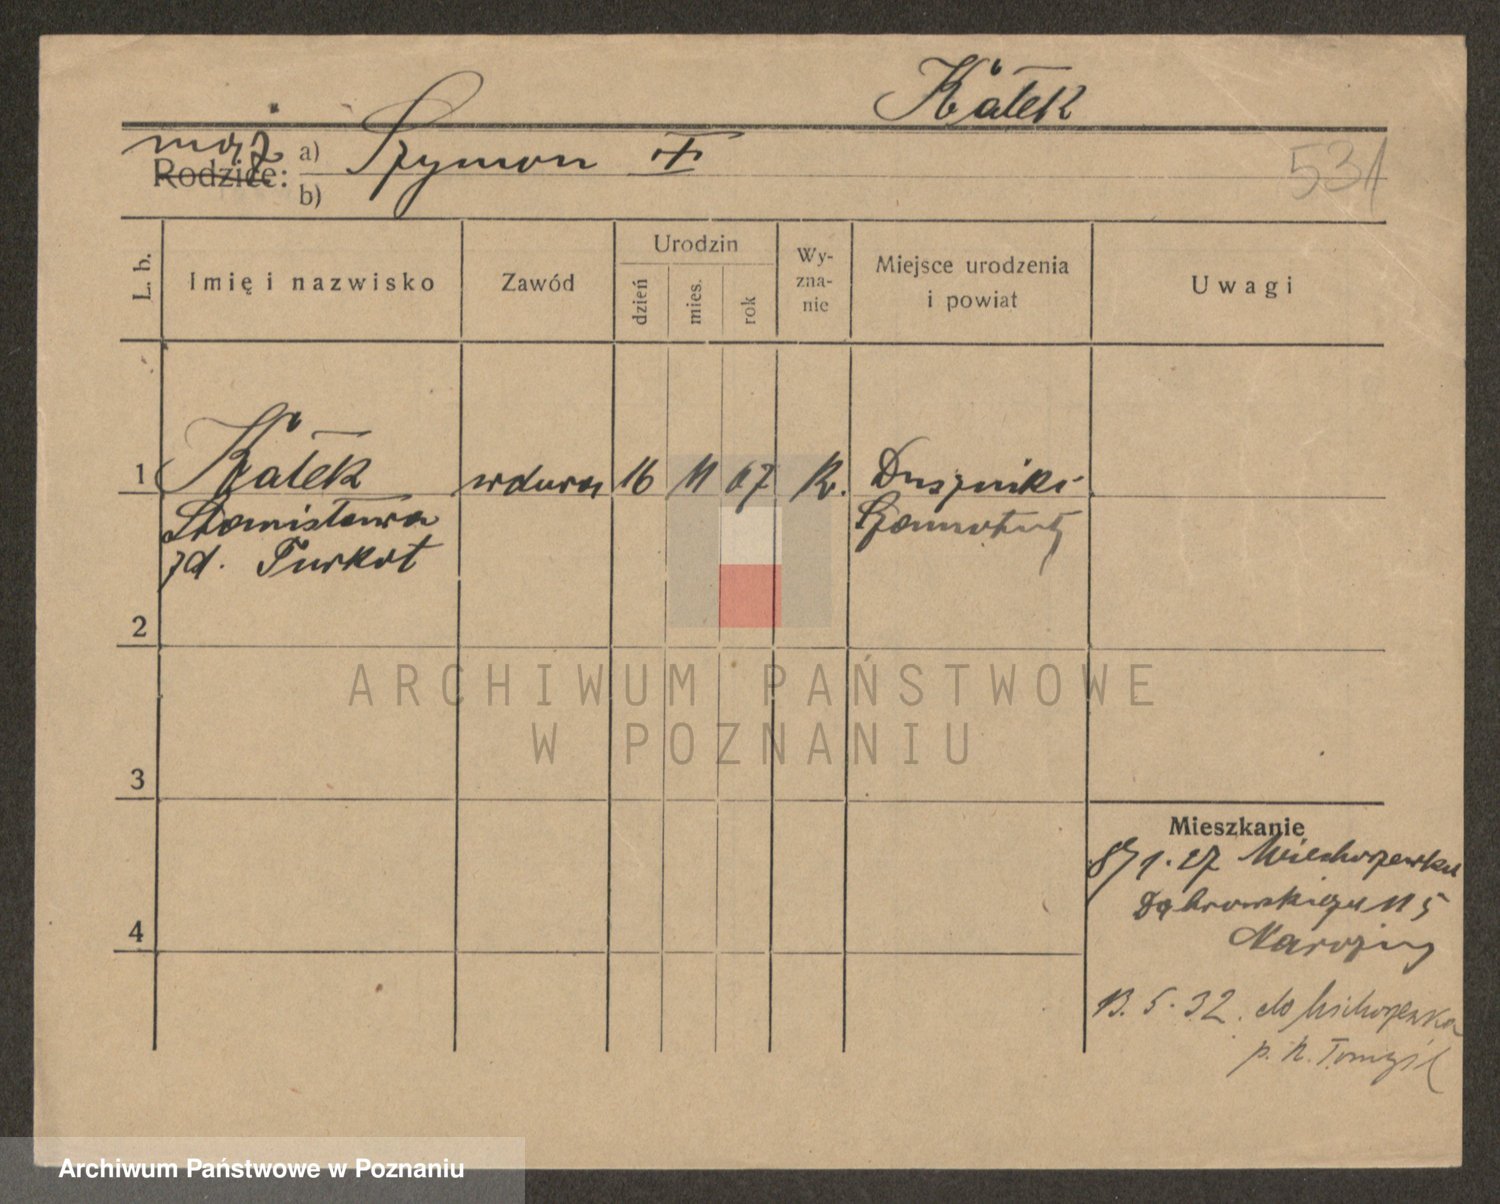 Kątek
mąż
Rodzice: a) Szymon
b)
531
L. b.
Imię i nazwisko
Zawód
Urodzin
dzień
mies.
rok
Wy-
zna-
nie
Miejsce urodzenia
i powiat
Uwagi
1
wdowa 16 11 67 Duszniki
Stanisława
Szamotuły
zd. Turkot
2
ARCHIWUM PAŃSTWOWE
W POZNANIU
3
Mieszkanie
1.27
Dąbrowskiego 115
4
13.5.32. do
p. N. Tomyśl
Archiwum Państwowe w Poznaniu